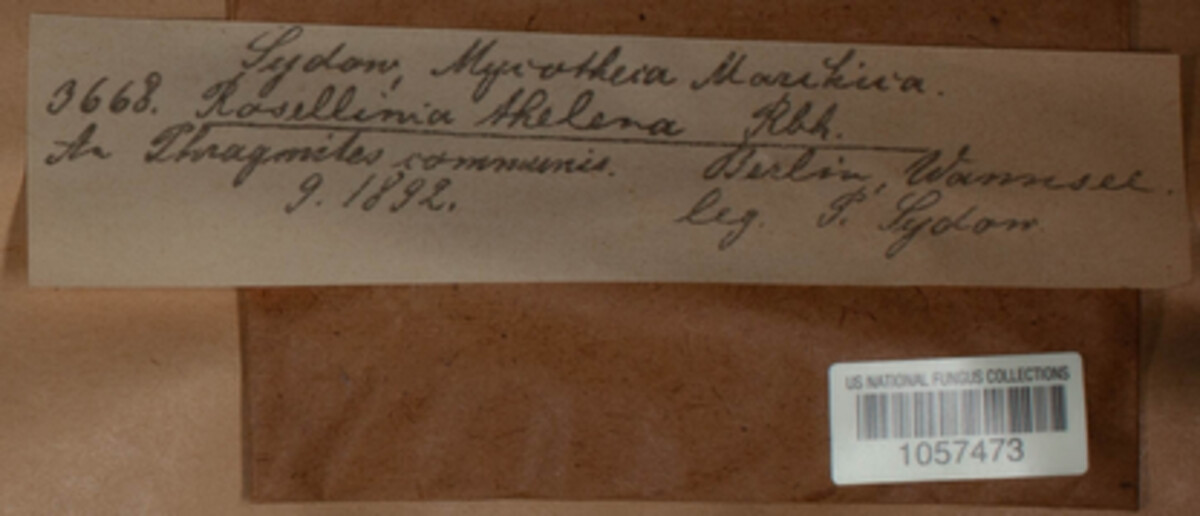 Sydow, Mycotheca Marchica.
3668. Rosellinia thelena Rbh.
An Phragmites communis. Berlin, Wannsee.
9. 1892. leg. P. Sydow
US NATIONAL FUNGUS COLLECTIONS
1057473